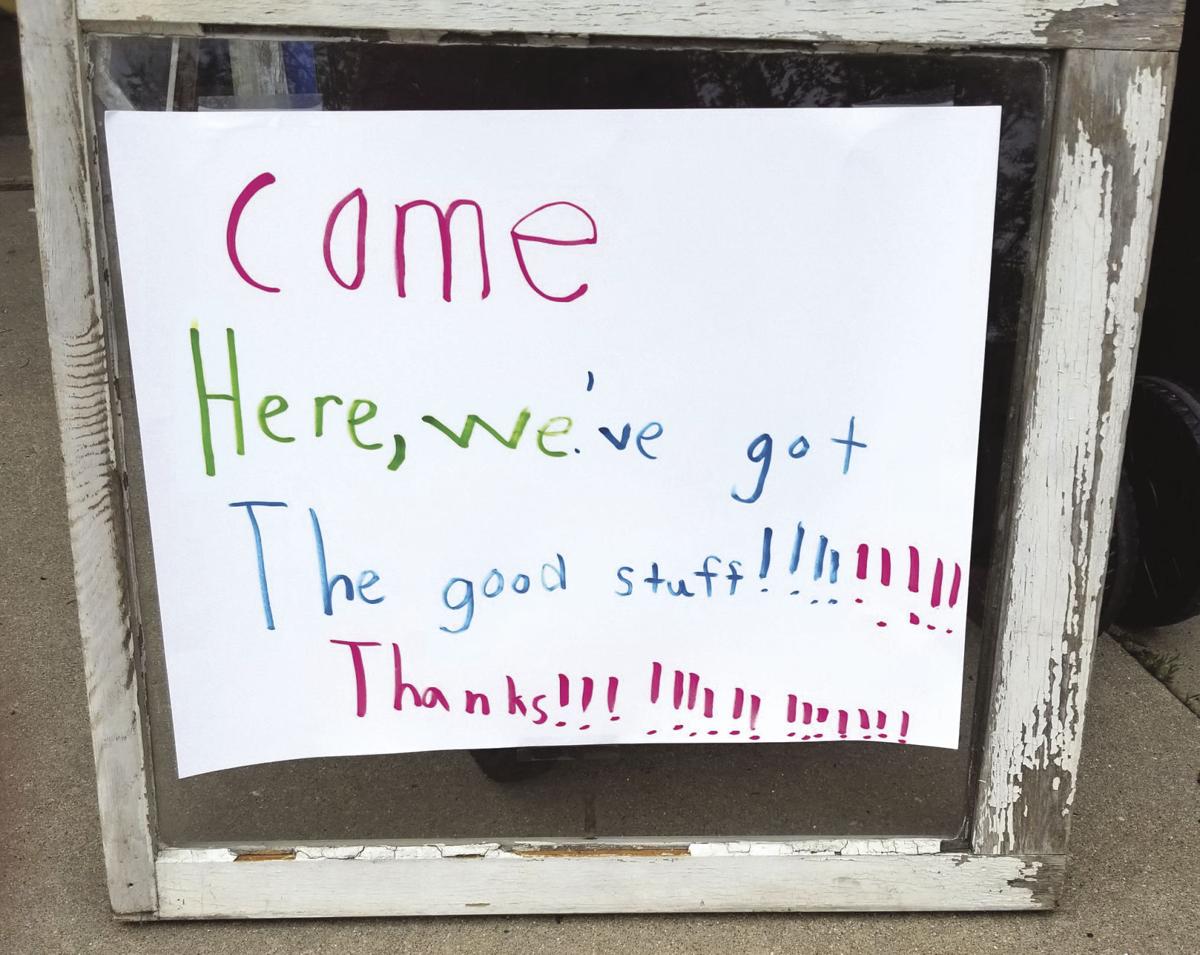 Come
Here, we've got
The good stuff!!!!!!!!!
Thanks!!! !!!!!! !!!!!!!!